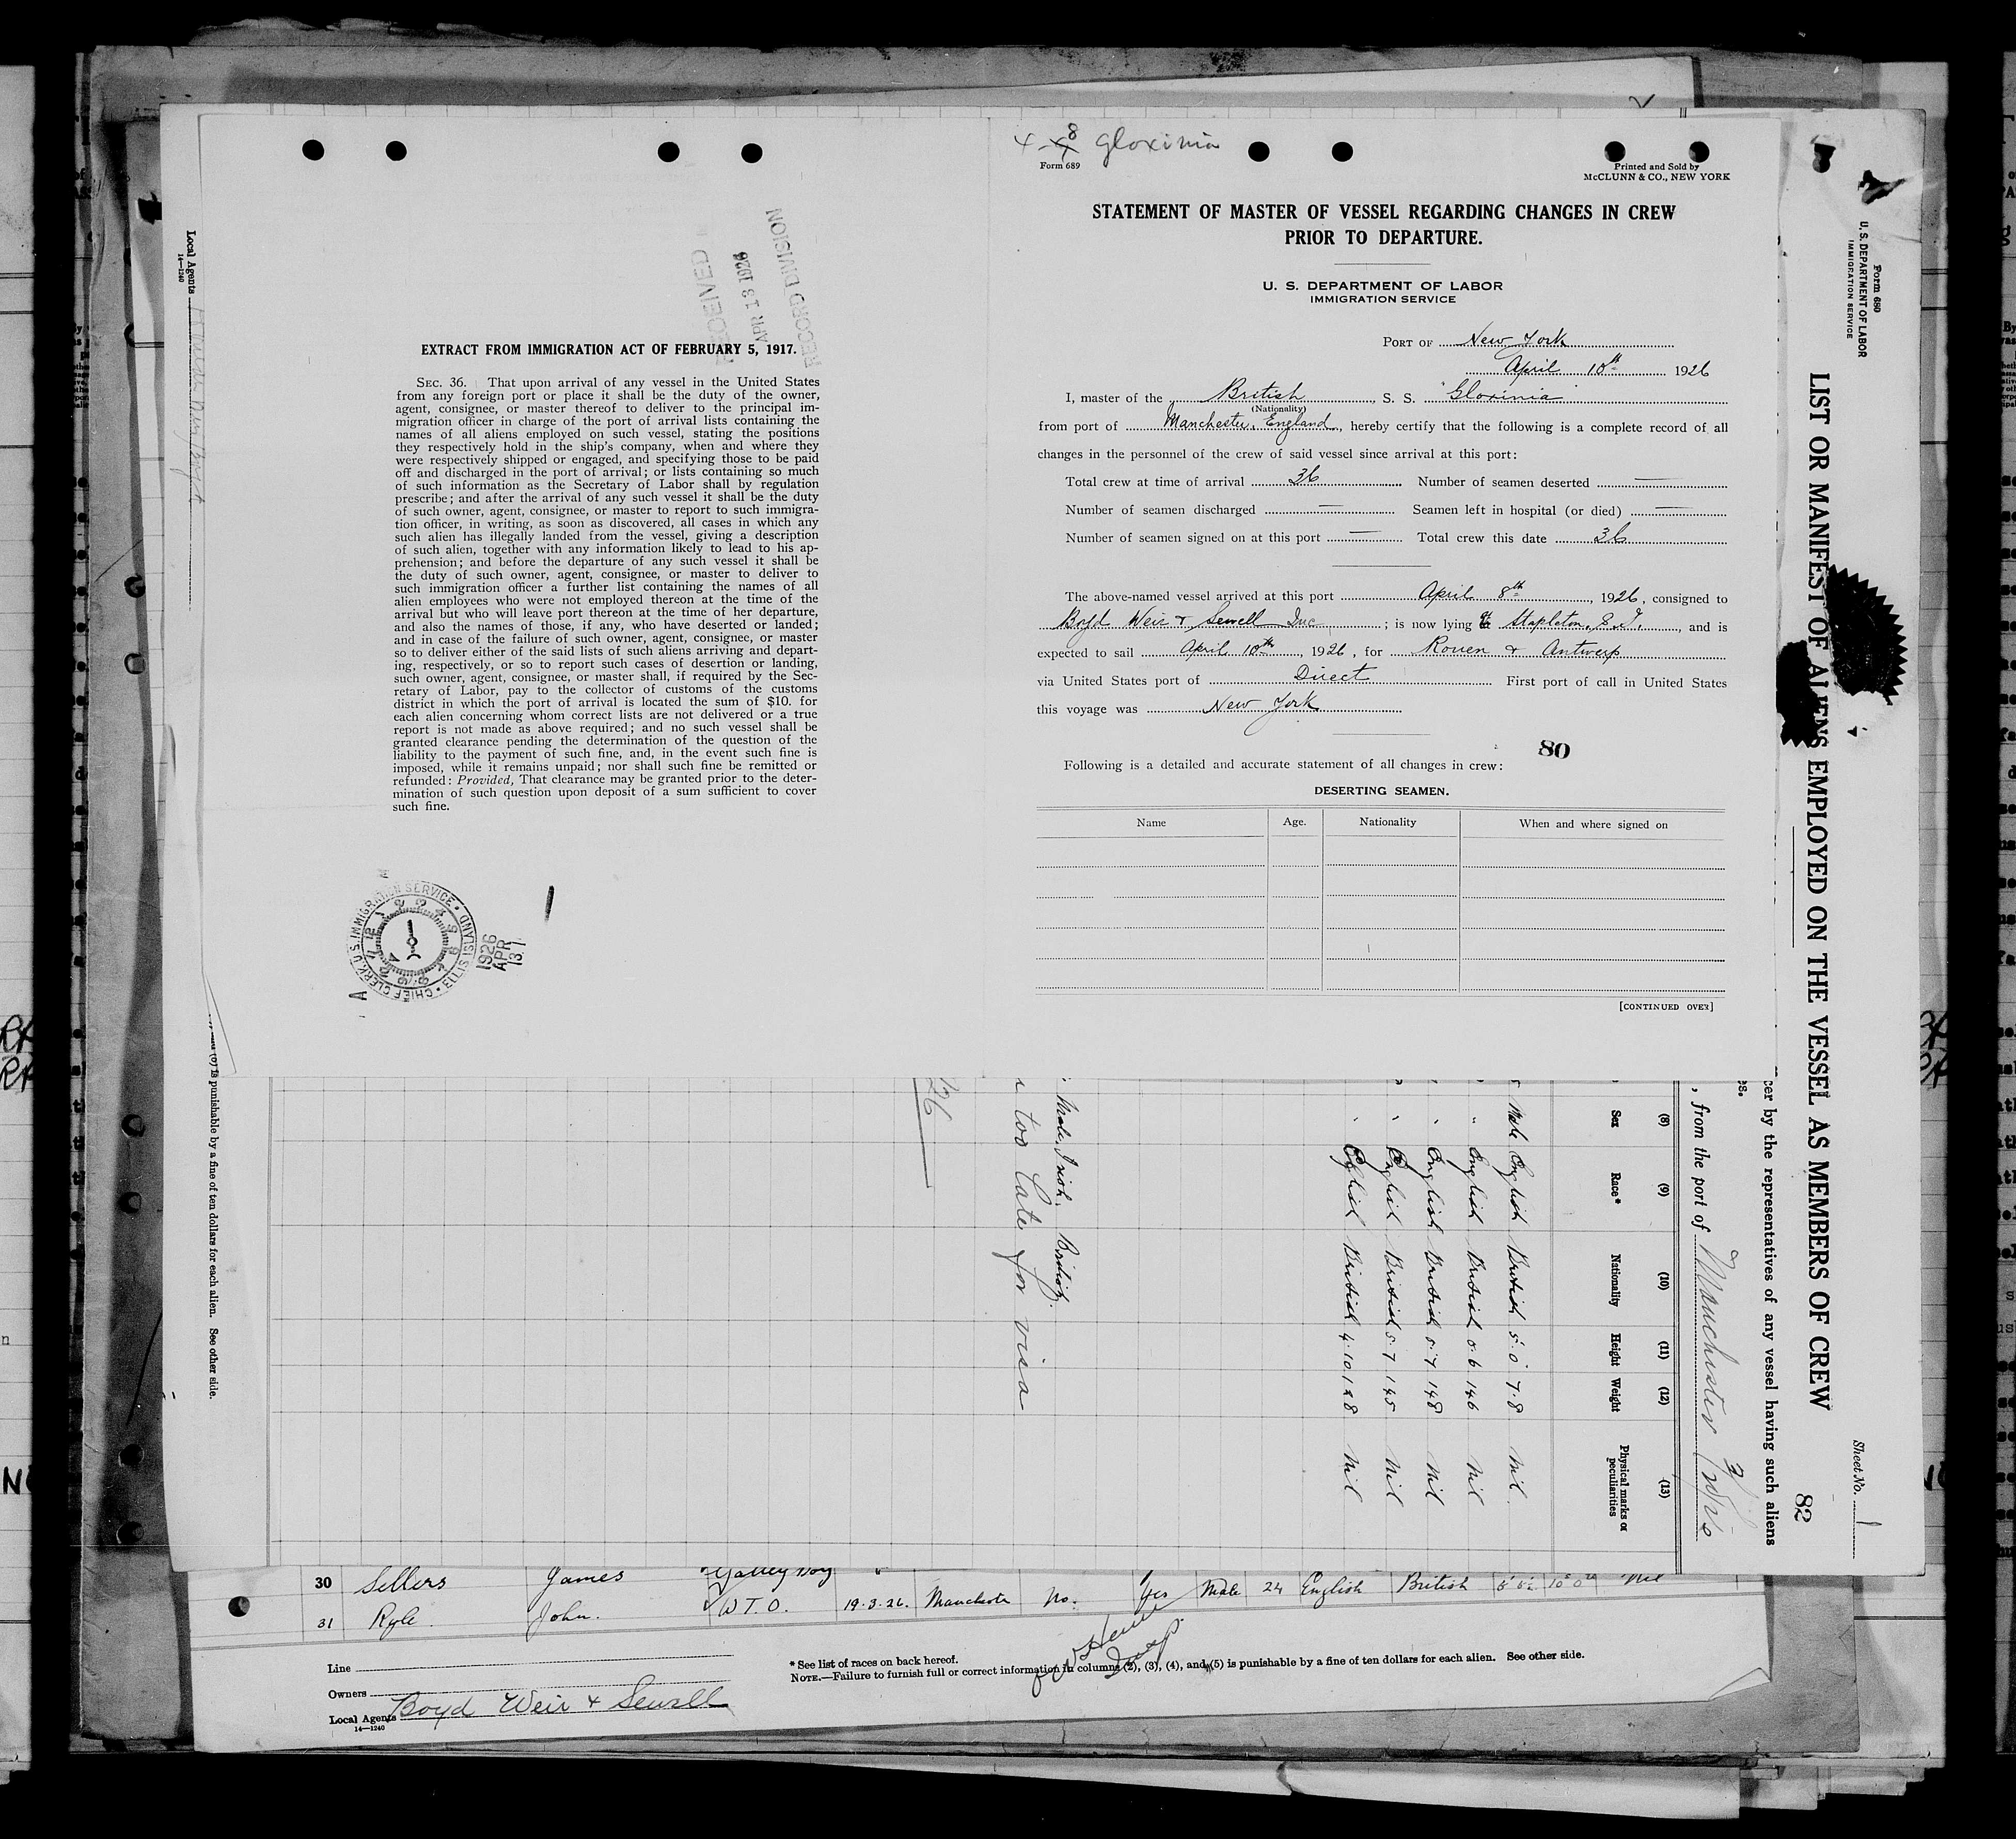 4-8 Gloxinia
Form 689
Printed and Sold by
McCLUNN & CO., NEW YORK
STATEMENT OF MASTER OF VESSEL REGARDING CHANGES IN CREW
PRIOR TO DEPARTURE.
U. S. DEPARTMENT OF LABOR
IMMIGRATION SERVICE
PORT OF New York
April 10th 1926
I, master of the British, S. S. "Gloxinia"
(Nationality)
from port of Manchester, England, hereby certify that the following is a complete record of all
changes in the personnel of the crew of said vessel since arrival at this port:
Total crew at time of arrival 36 Number of seamen deserted —
Number of seamen discharged — Seamen left in hospital (or died) —
Number of seamen signed on at this port — Total crew this date 36
The above-named vessel arrived at this port April 8th, 1926, consigned to
Boyd Weir & Sewell Inc; is now lying at Stapleton, S.I., and is
expected to sail April 10th, 1926, for Rouen & Antwerp
via United States port of Direct First port of call in United States
this voyage was New York
80
Following is a detailed and accurate statement of all changes in crew:
DESERTING SEAMEN.
Name Age. Nationality When and where signed on
[CONTINUED OVER]
RECEIVED
APR 13 1926
RECORD DIVISION
EXTRACT FROM IMMIGRATION ACT OF FEBRUARY 5, 1917.
SEC. 36. That upon arrival of any vessel in the United States
from any foreign port or place it shall be the duty of the owner,
agent, consignee, or master thereof to deliver to the principal im-
migration officer in charge of the port of arrival lists containing the
names of all aliens employed on such vessel, stating the positions
they respectively hold in the ship's company, when and where they
were respectively shipped or engaged, and specifying those to be paid
off and discharged in the port of arrival; or lists containing so much
of such information as the Secretary of Labor shall by regulation
prescribe; and after the arrival of any such vessel it shall be the duty
of such owner, agent, consignee, or master to report to such immigra-
tion officer, in writing, as soon as discovered, all cases in which any
such alien has illegally landed from the vessel, giving a description
of such alien, together with any information likely to lead to his ap-
prehension; and before the departure of any such vessel it shall be
the duty of such owner, agent, consignee, or master to deliver to
such immigration officer a further list containing the names of all
alien employees who were not employed thereon at the time of the
arrival but who will leave port thereon at the time of her departure,
and also the names of those, if any, who have deserted or landed;
and in case of the failure of such owner, agent, consignee, or master
so to deliver either of the said lists of such aliens arriving and depart-
ing, respectively, or so to report such cases of desertion or landing,
such owner, agent, consignee, or master shall, if required by the Sec-
retary of Labor, pay to the collector of customs of the customs
district in which the port of arrival is located the sum of $10. for
each alien concerning whom correct lists are not delivered or a true
report is not made as above required; and no such vessel shall be
granted clearance pending the determination of the question of the
liability to the payment of such fine, and, in the event such fine is
imposed, while it remains unpaid; nor shall such fine be remitted or
refunded: Provided, That clearance may be granted prior to the deter-
mination of such question upon deposit of a sum sufficient to cover
such fine.
CHIEF CLERK, U.S. IMMIGRATION SERVICE · ELLIS ISLAND ·
1926
APR
13
Local Agents
14—1240
Form 680
U. S. DEPARTMENT OF LABOR
IMMIGRATION SERVICE
Sheet No. 1
LIST OR MANIFEST OF ALIENS EMPLOYED ON THE VESSEL AS MEMBERS OF CREW
82
by the representatives of any vessel having such aliens
, from the port of Manchester
(8) (9) (10) (11) (12) (13)
Sex Race* Nationality Height Weight Physical marks or peculiarities
Male English British 5. 0 7.8 Nil
" English British 5.6 146 Nil
" English British 5.7 148 Nil
" English British 5.7 145 Nil
" English British 4.10 128 Nil
Male Irish British
too late for visa
26
is punishable by a fine of ten dollars for each alien. See other side.
30 Sellers James Galley Boy
31 Ryle John. W.T.O. 19.3.26. Manchester No. Yes Male 24 English British Nil
Line
Owners
Local Agents Boyd Weir & Sewell
14—1240
* See list of races on back hereof.
NOTE.—Failure to furnish full or correct information in columns (2), (3), (4), and (5) is punishable by a fine of ten dollars for each alien. See other side.